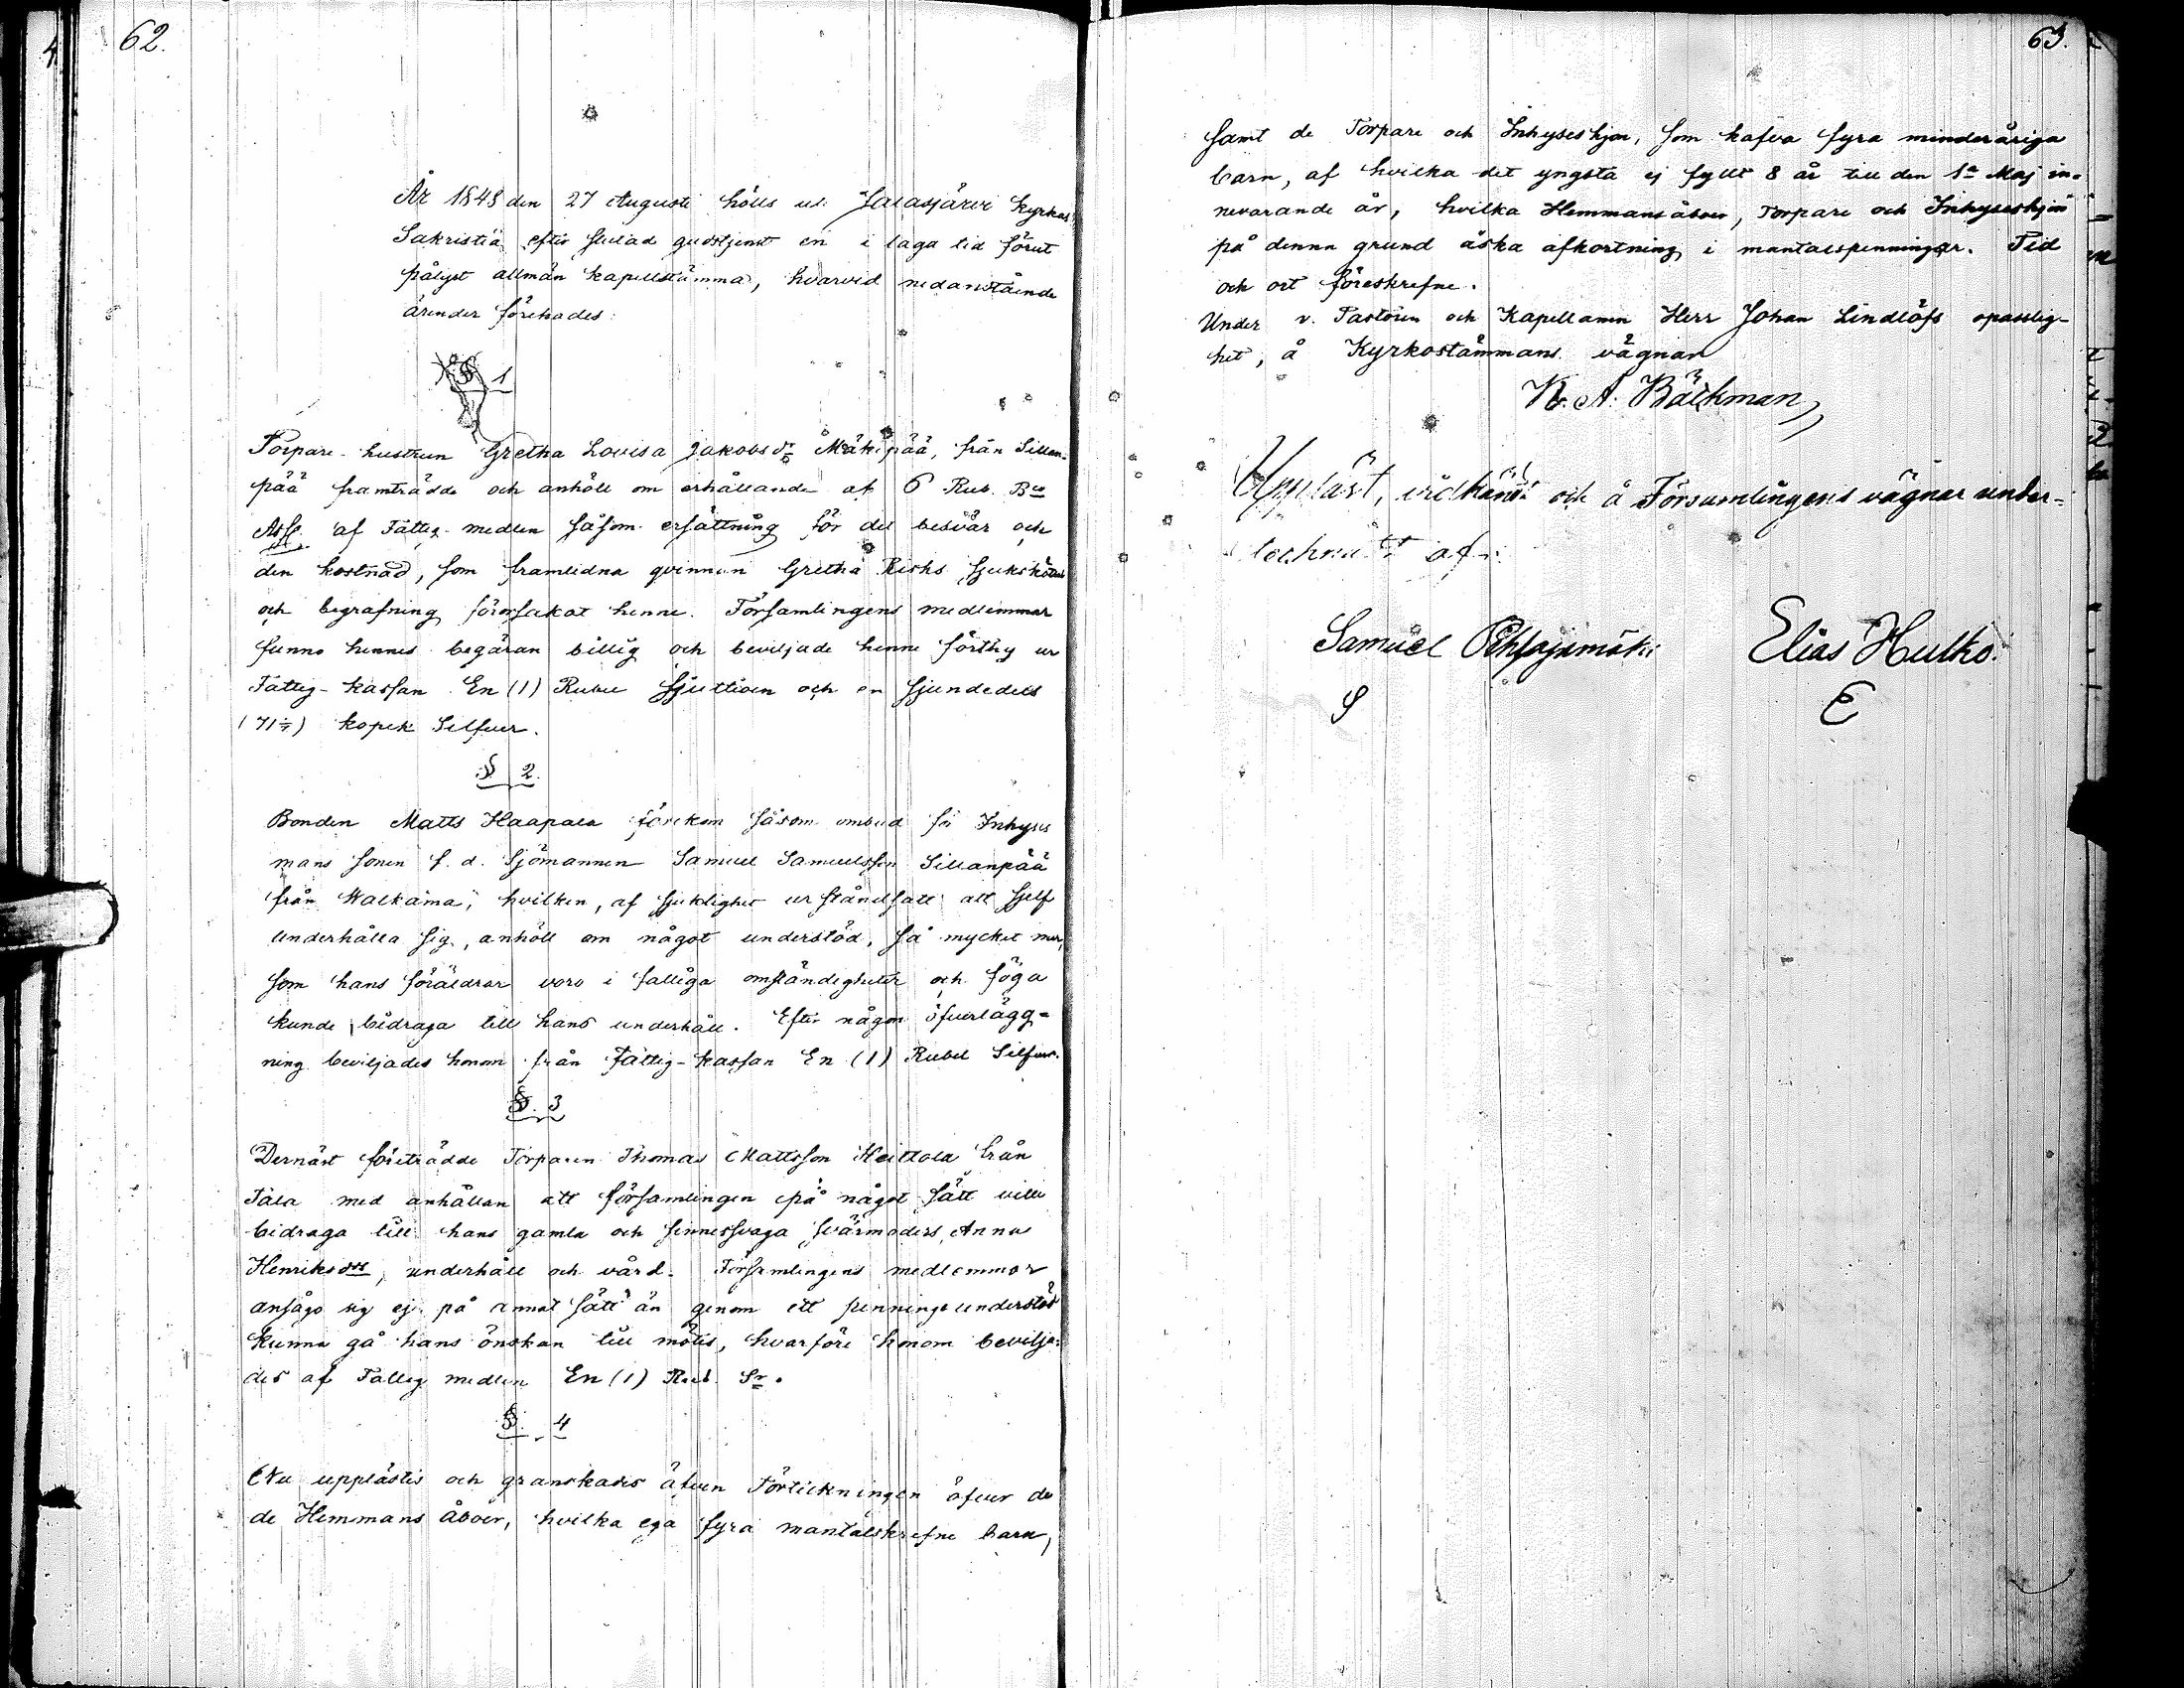 62.
År 1848 den 27 Augusti hölls uti Jalasjärvi Kyrkas
Sakristia efter slutad gudstjenst en i laga tid förut
pålyst allmän kapellstämma, hvarvid nedanstående
ärender förehades:
§ 1
Torpare-hustrun Gretha Lovisa Jakobsdr Mäkipää, från Sillan-
pää framträdde och anhöll om erhållande af 6 Rub. Bco
Assr. af Fattig-medlen såsom ersättning för det besvär och
den kostnad, som framlidna qvinnan Gretha Riska sjukskötsel
och begrafning förorsakat henne. Församlingens medlemmar
funno hennes begäran billig och beviljade henne förthy ur
Fattig-kassan En (1) Rubel sjuttioen och en sjundedels
(71 1/7) kopek Silfver.
§ 2.
Bonden Matts Haapala förekom såsom ombud för Inhyses
mans sonen f. d. Sjömannen Samuel Samuelsson Sillanpää
från Walkama, hvilken, af sjuklighet urståndsatt att sjelf
underhålla sig, anhöll om något understöd, så mycket mer,
som hans föräldrar voro i fattiga omständigheter och föga
kunde bidraga till hans underhåll. Efter någon öfverlägg-
ning beviljades honom från Fattig-kassan En (1) Rubel Silfver.
§. 3
Dernäst företrädde Torparen Thomas Mattsson Keittola från
Tåla med anhållan att församlingen på något sätt ville
bidraga till hans gamla och sinnessvaga svärmoders, Anna
Henriksdrs, underhåll och vård. Församlingens medlemmar
ansågo sig ej på annat sätt än genom ett penninge understöd
kunna gå hans önskan till mötes, hvarföre honom bevilja-
des af Fattig medlen En (1) Rub. Sr.
§. 4
Nu upplästes och granskades äfven Förteckningen öfver de
de Hemmans åboer, hvilka ega fyra mantalskrefne barn,
63.
samt de Torpare och Inhyseshjon, som hafva fyra minderåriga
barn, af hvilka det yngsta ej fyllt 8 år till den 1a Maj in-
nevarande år, hvilka Hemmansåboer, Torpare och Inhyseshjon
på denna grund äska afkortning i mantalspenningar. Tid
och ort föreskrefne.
Under v. Pastoren och Kapellanen Herr Johan Lindlöfs opasslig-
het, å Kyrkostämmans vägnar
K. A. Bäckman
Uppläst, vidkändt och å Församlingens vägnar under-
tecknadt af:
Samuel Pihlajamäki Elias Hutko.
S E